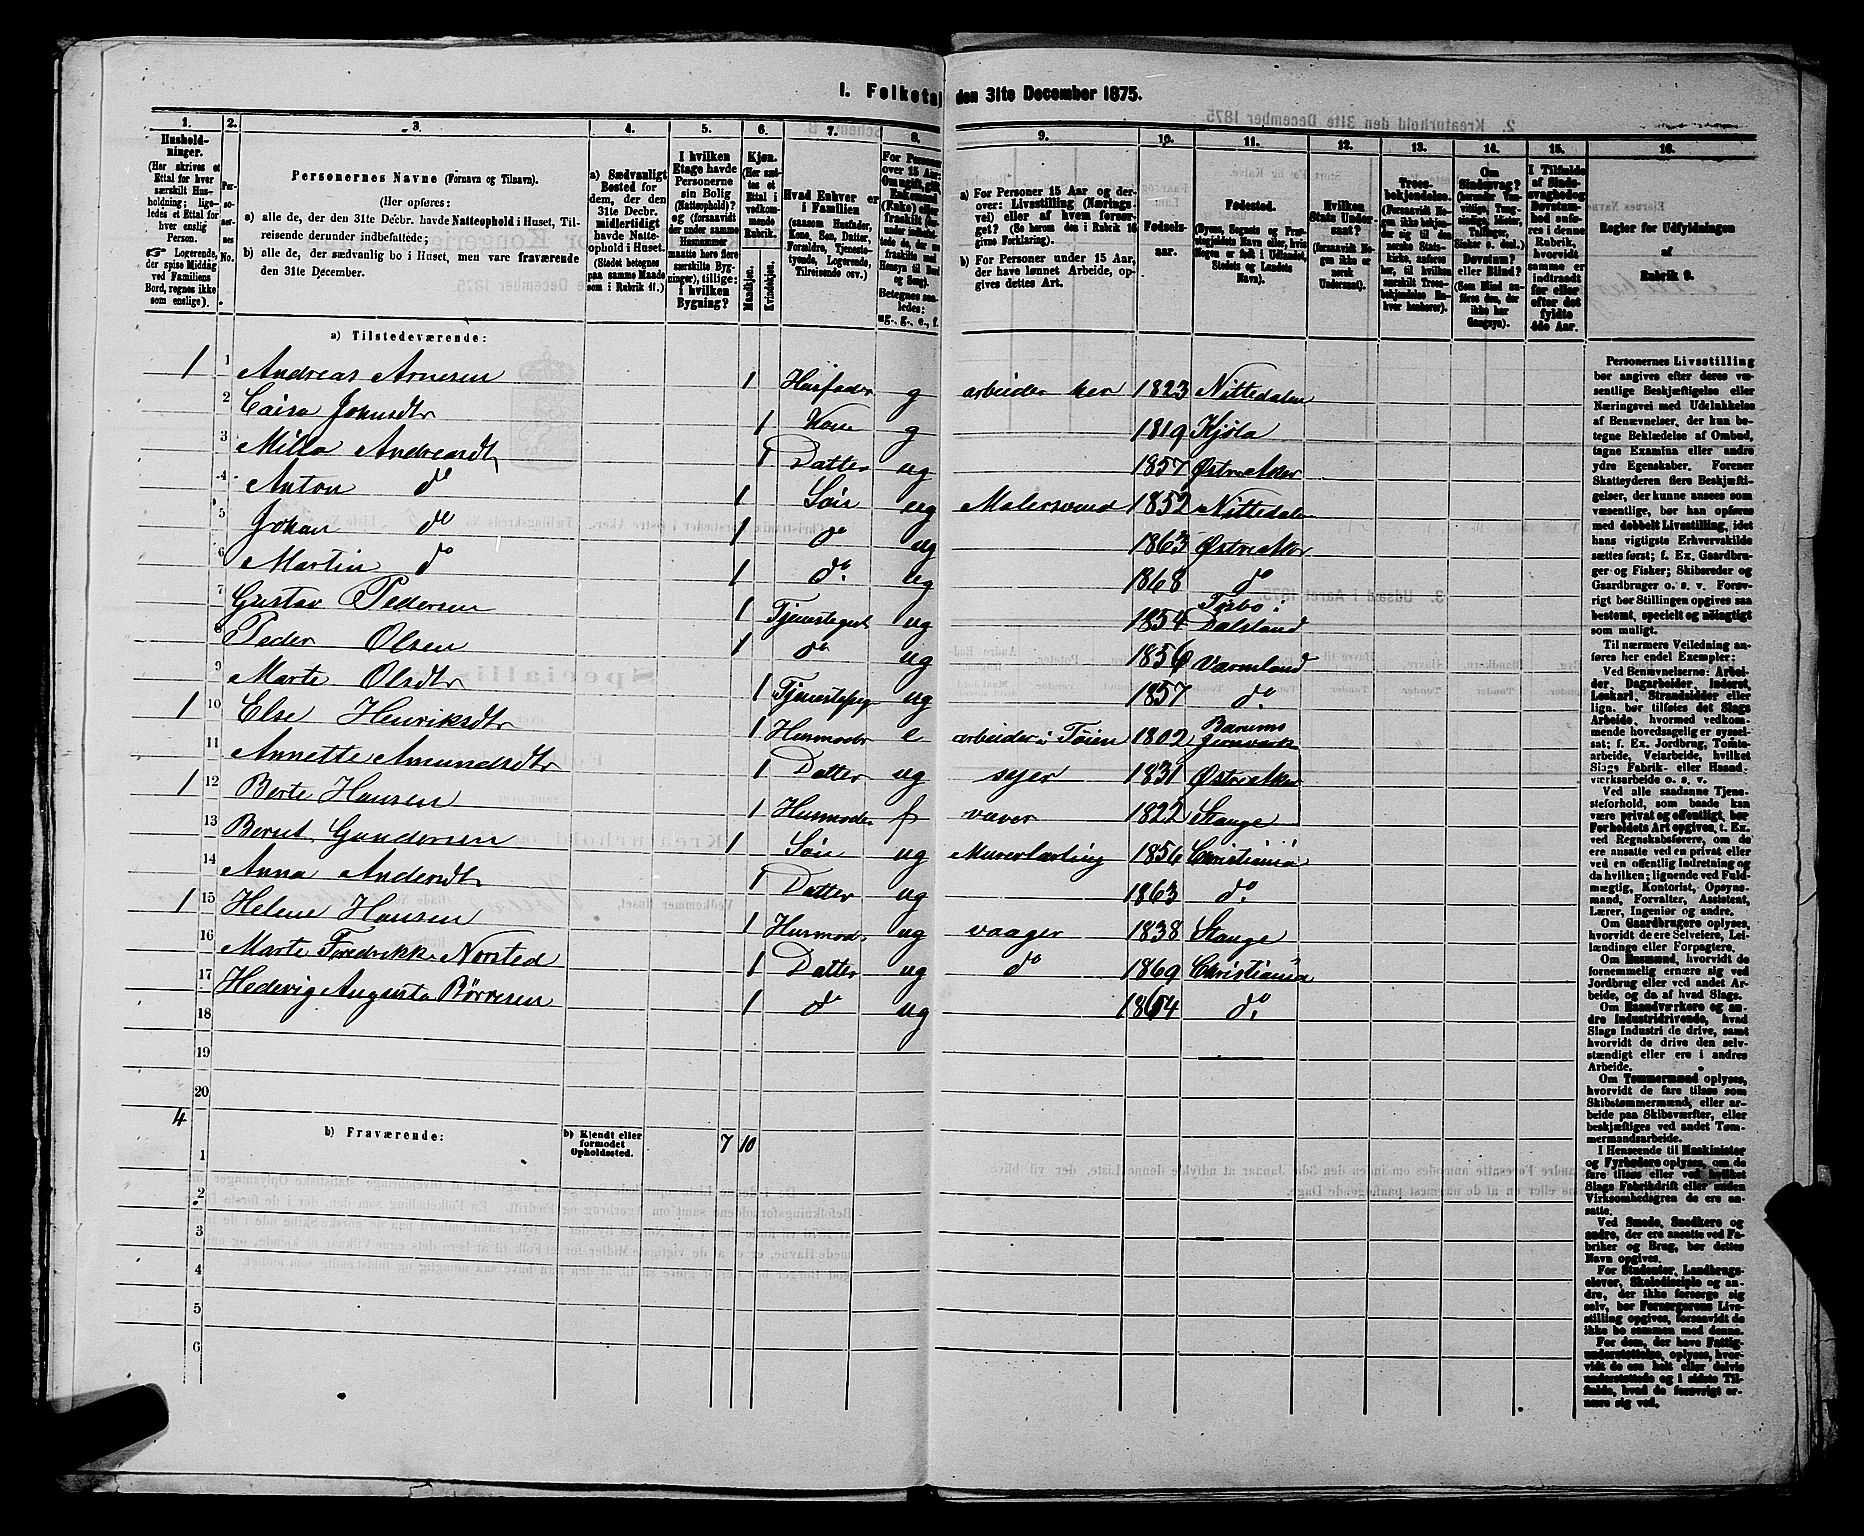 I. Folketal den 31te December 1875.
1. 2. 3. 4. 5. 6. 7. 8. 9. 10. 11. 12. 13. 14. 15. 16.
Hushold-
ninger.
(Her skrives et
Ettal for hver
særskilt Hus-
holdning; lige-
ledes et Ettal for
hver enslig
Person.
Logerende,
der spise Middag
ved Familiens
Bord, regnes ikke
som enslige).
Per-
soner-
nes
No.
Personernes Navne (Fornavn og Tilnavn).
(Her opføres:
a) alle de, der den 31te Decbr. havde Natteophold i Huset, Til-
reisende derunder indbefattede;
b) alle de, der sædvanlig bo i Huset, men vare fraværende
den 31te December.
a) Sædvanligt
Bosted for
dem, der den
31te Decbr.
midlertidigt
havde Natte-
ophold i Huset.
(Stedet betegnes
paa samme Maade
som i Rubrik 11.)
I hvilken
Etage havde
Personerne
sin Bolig
(Natteophold)?
og (forsaavidt
der under samme
Husnummer
maatte høre flere
særskilte Byg-
ninger), tillige:
i hvilken
Bygning?
Kjøn.
(Her sæt-
tes et
Ettal i
vedkom-
mende
Rubrik.
Mandkjøn.
Kvindekjøn.
Hvad Enhver er
i Familien
(saasom Husfader,
Kone, Søn, Datter,
Forældre, Tjeneste-
tyende, Logerende,
Tilreisende osv.)
For Personer
over 15 Aar:
ug., g., e., f.
a) For Personer 15 Aar og der-
over: Livsstilling (Nærings-
vei) eller af hvem forsør-
get? (Se herom den i Rubrik 16
givne Forklaring).
b) For Personer under 15 Aar,
der have lønnet Arbeide, op-
gives dettes Art.
Fødsels-
aar.
Fødested.
(Byens, Sognets og Præ-
stegjeldets Navn eller, hvis
Nogen er født i Udlandet,
Stedets og Landets
Navn).
Hvilken
Stats Under-
saat?
(forsaavidt No-
gen ikke er
norsk
Undersaat).
Troes-
bekjendelse.
(Forsaavidt No-
gen ikke hører
til den
norske Stats-
kirke, anfø-
res, til hvilken
særskilt Troes-
bekjendelse En-
hver henhører).
Om
Sindssvag?
Døvstum?
eller Blind?
I Tilfælde
af Sinds-
svaghed og
Døvstum-
hed anfø-
res i denne
Rubrik,
hvorvidt
samme er
indtraadt
før eller
efter det
fyldte
4de Aar.
Regler for Udfyldningen
af
Rubrik 9.
a) Tilstedeværende:
1 1 Andreas Arnesen 1 Husfader g arbeider her 1823 Nittedalen
2 Caisa Johnsdtr 1 Kone g 1819 Kjøla
3 Milla Andreasdt 1 Datter ug 1857 Østre Aker
4 Anton do 1 Søn ug Malersvend 1852 Nittedalen
5 Johan do 1 do ug 1863 Østre Aker
6 Martin do 1 do. ug 1868 do
7 Gustav Pedersen 1 Tjenestegut ug 1854 Færbo i
Dalsland
8 Peder Olsen 1 do ug 1856 Värmland
9 Marte Olsdtr 1 Tjenestepige ug 1857 do.
1 10 Else Henriksdtr 1 Husmoder e arbeider i Tøien 1802 Bærums
Jernverk
11 Annette Amundsdtr 1 Datter ug syer 1831 Østre Aker
1 12 Berte Hansen 1 Husmoder f væver 1822 Stange
13 Bernt Gundersen 1 Søn ug Murerlærling 1856 Christiania
14 Anna Andersdt 1 Datter ug 1863 do.
1 15 Helene Hansen 1 Husmodr ug vasger 1838 Stange
16 Marte Fredrikke Norsted 1 Datter ug do 1869 Christiania
17 Hedevig Augusta Børresen 1 do ug 1864 do.
18
19
20
4 7 10
b) Fraværende:
b) Kjendt eller
formodet
Opholdssted.
1
2
3
4
5
6
Personernes Livsstilling
bør angives efter deres væ-
sentlige Beskjæftigelse eller
Næringsvei med Udelukkelse
af Benævnelser, der kun be-
tegne Beklædelse af Ombud,
tagne Examina eller andre
ydre Egenskaber. Forener
Skatteyderen flere Beskjæfti-
gelser, der kunne ansees som
væsentlige, bør han opføres
med dobbelt Livsstilling, idet
hans vigtigste Erhvervskilde
sættes først; f. Ex. Gaardbru-
ger og Fisker; Skibsreder og
Gaardbruger o. s. v. Forøv-
rigt bør Stillingen opgives saa
bestemt, specielt og nøiagtigt
som muligt.
Til nærmere Veiledning an-
føres her endel Exempler:
Ved Benævnelserne: Arbei-
der, Dagarbeider, Inderst,
Løskarl, Strandsidder eller
lign. bør tilføies det Slags
Arbeide, hvormed vedkom-
mende hovedsagelig er syssel-
sat; f. Ex. Jordbrug, Tomte-
arbeide, Veiarbeide, hvilket
Slags Fabrik- eller Haand-
værksarbeide o. s. v.
Ved alle saadanne Tjene-
steforhold, som baade kan
være privat og offentligt, bør
Forholdets Art opgives, f. Ex.
ved Regnskabsførere, om de
ere ansatte ved en privat eller
ved en offentlig Indretning og
da hvilken; lignende ved Fuld-
mægtig, Kontorist, Opsyns-
mand, Forvalter, Assistent,
Lærer, Ingeniør og andre.
Om Gaardbrugere oplyses,
hvorvidt de ere Selveiere, Lei-
lændinge eller Forpagtere.
Om Husmænd, hvorvidt de
fornemmelig ernære sig ved
Jordbrug eller ved andet Ar-
beide, og da af hvad Slags.
Om Haandværkere og an-
dre Industridrivende, hvad
Slags Industri de drive, samt
hvorvidt de drive den selv-
stændigt eller ere i andres
Arbeide.
Om Tømmermænd oplyses,
hvorvidt de fare tilsøs som
Skibstømmermænd, eller ar-
beide paa Skibsværfter, eller
beskjæftiges ved andet Tøm-
mermandsarbeide.
I Henseende til Maskinister
og Fyrbødere oplyses, om de
fare tilsøs eller ved hvilket
Slags Fabrikdrift eller anden
Virksomhedsgren de ere an-
satte.
Ved Smede, Snedkere og
andre, der ere ansatte ved Fa-
briker og Brug, bør dettes
Navn opgives.
For Studenter, Landbrugs-
elever, Skoledisciple og an-
dre, der ikke forsørge sig
selv, bør Forsørgerens Livs-
stilling opgives, forsaavidt de
ikke bo sammen med denne.
For dem, der have Fattig-
understøttelse, oplyses, hvor-
vidt de ere helt eller delvis
understøttede og i sidste Til-
fælde, hvad de forøvrigt er-
nære sig ved.